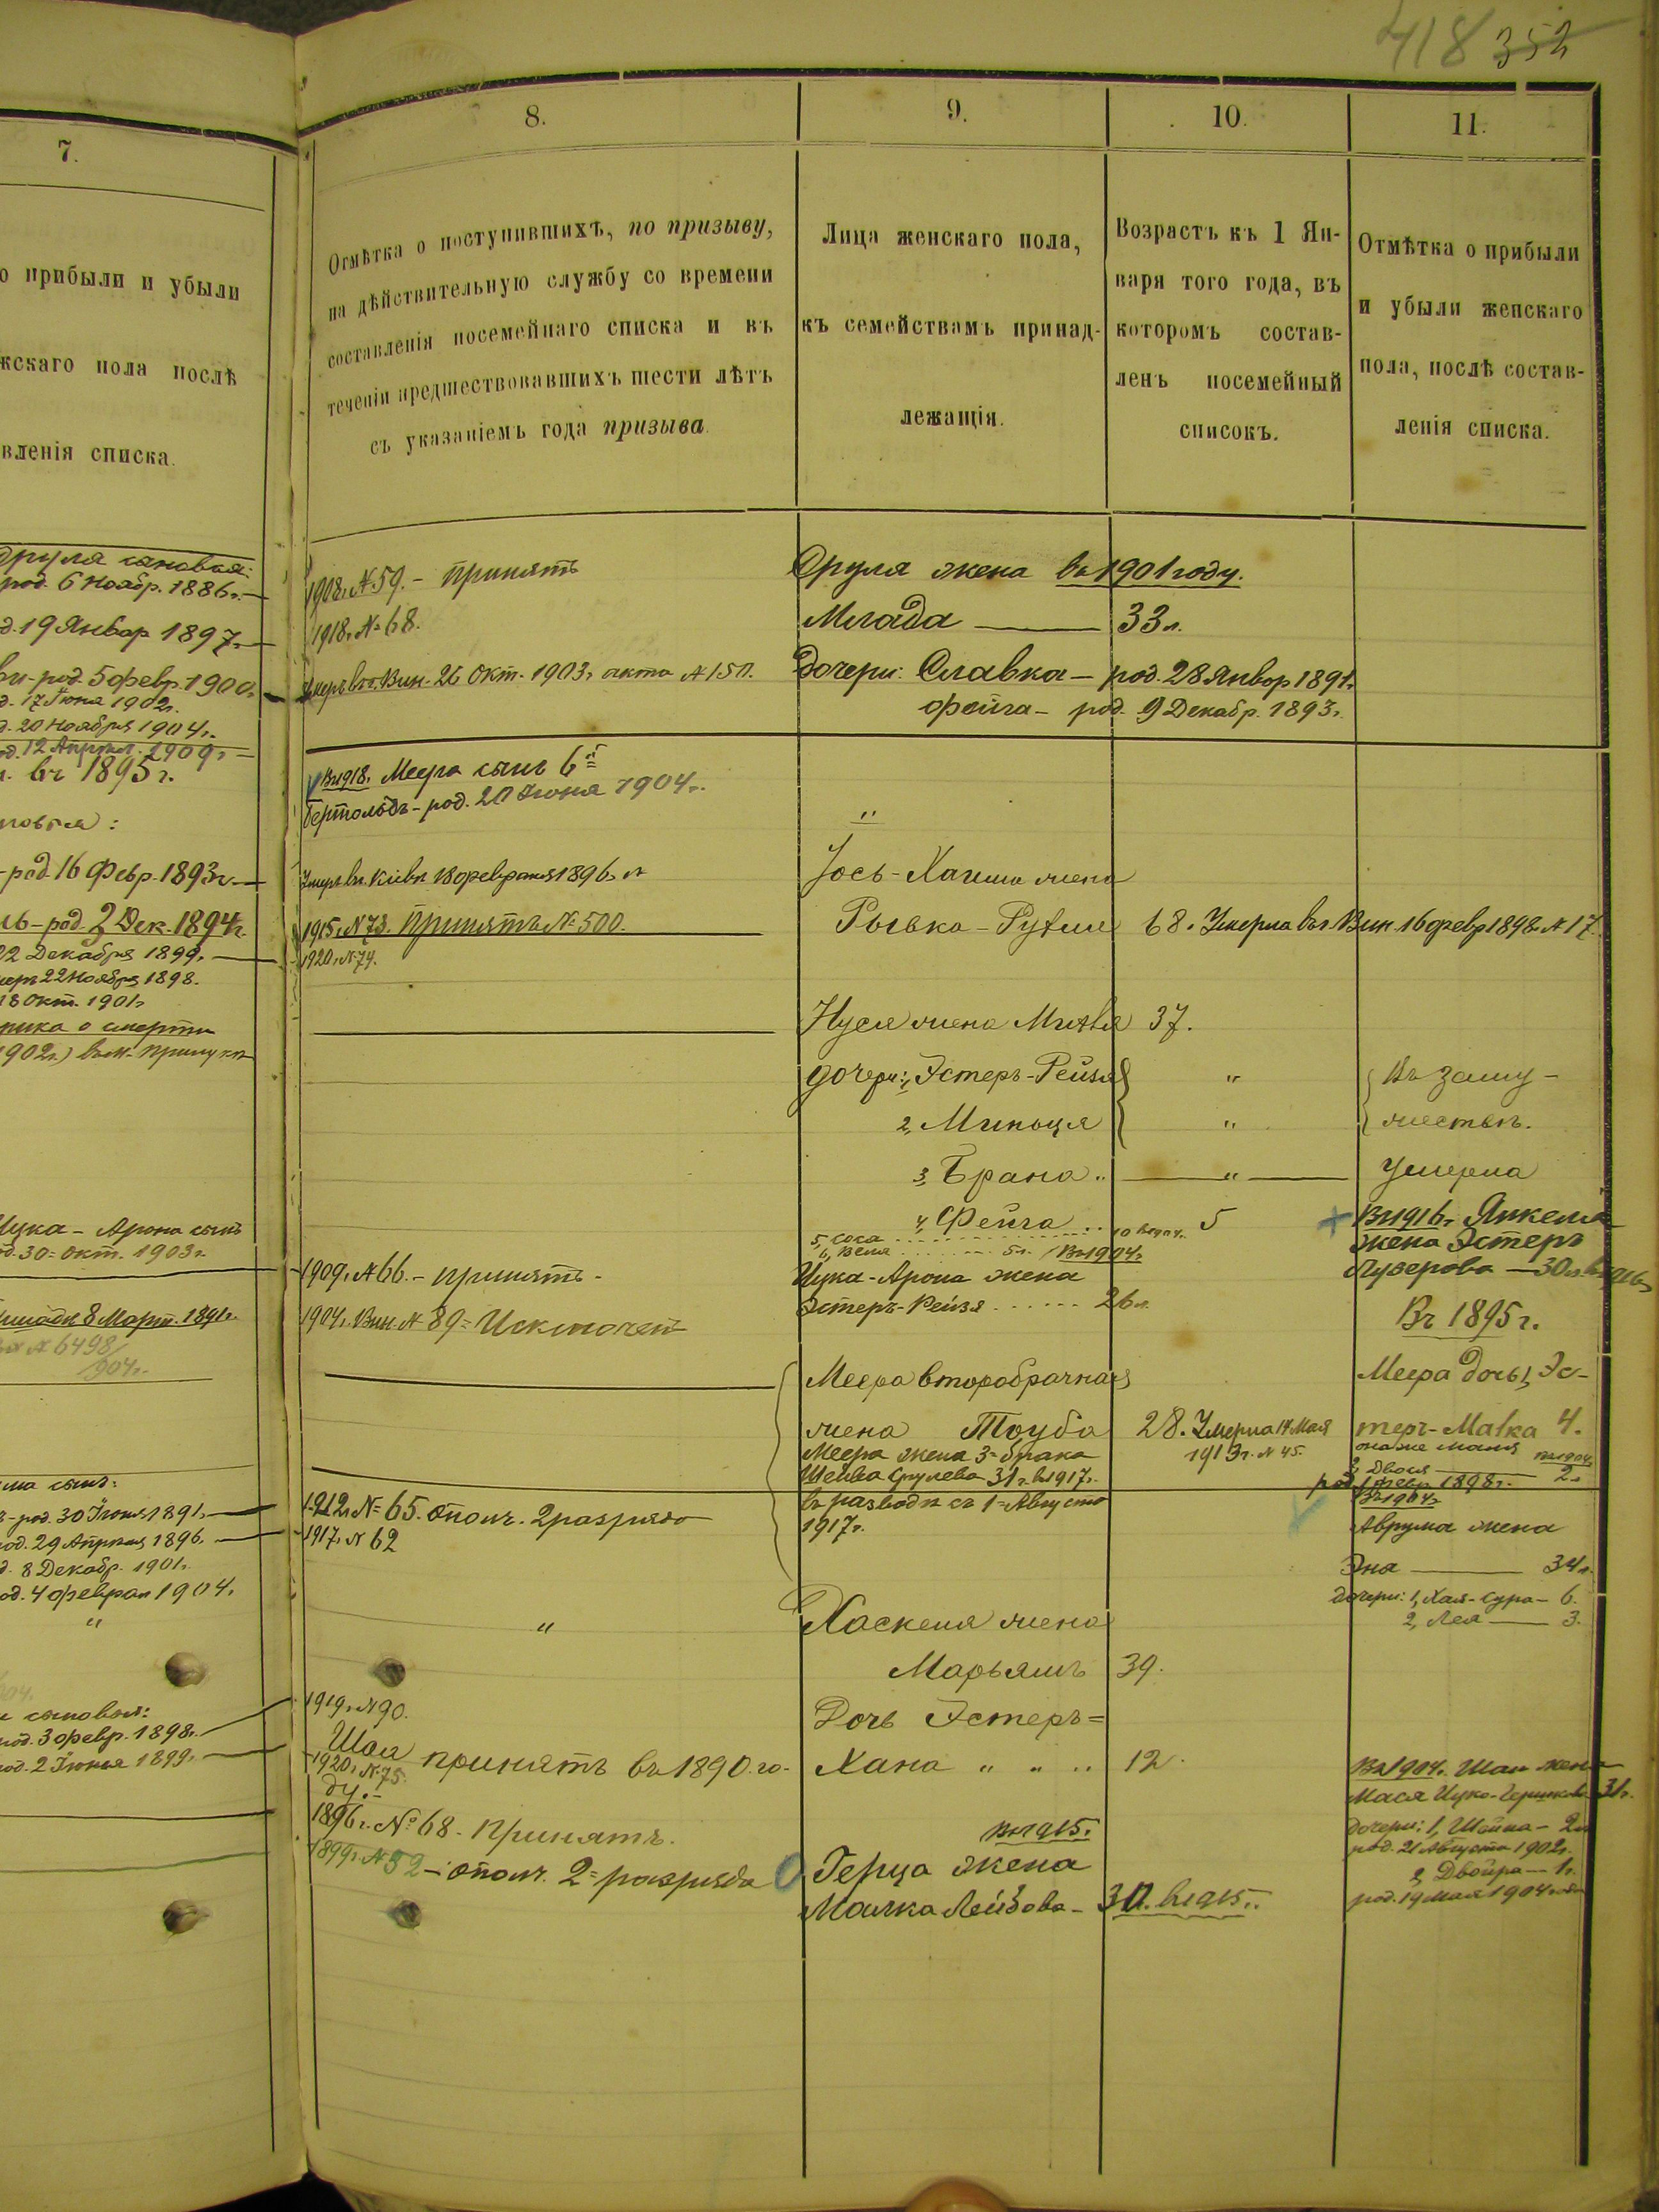 418 352
7.
8.
9.
10.
11.
о прибыли и убыли
жскаго пола послѣ
вленія списка.
Отмѣтка о поступившихъ, по призыву,
на дѣйствительную службу со времени
составленія посемейнаго списка и въ
теченіи предшествовавшихъ шести лѣтъ
съ указаніемъ года призыва.
Лица женскаго пола,
къ семействамъ принад-
лежащія.
Возрастъ къ 1 Ян-
варя того года, въ
которомъ состав-
ленъ посемейный
списокъ.
Отмѣтка о прибыли
и убыли женскаго
пола, послѣ состав-
ленія списка.
Сруля сыновья:
род. 6 Ноябр. 1886г.
19 Январ 1897г.
род. 5 февр. 1900г.
17 Іюня 1902г.
20 Ноября 1904г.
12 Апрѣл. 1909г.
въ 1895г.
новья:
род. 16 Февр. 1893г.
ль - род. 2 Дек. 1894г.
22 Декабря 1899г.
22 Ноября 1898.
18 Окт. 1901г.
о смерти
1902г.) въ м. Прилуки
Ицка - Арона сынъ
30 = окт. 1903г.
8 Март. 1891г.
№ 6498/904г.
сынъ:
- род. 30 Іюня 1891г.
род. 29 Апрѣля 1896г.
8 Декабр. 1901г.
род. 4 феврал 1904г.
"
сыновья:
род. 3 февр. 1898г.
род. 2 Іюня 1899г.
1908г. №59. - принятъ
1918г. №68.
Умеръ въ г. Вин. 26 Окт. 1903г. акта №150.
Въ 1918г. Меера сынъ 6й
Бертольдъ - род. 20 Іюня 1904г.
Умеръ въ г. Кіевѣ 18 февраля 1896г. №
1915г. №73. Принятъ №500.
1920г. №74.
1909г. №66. - принятъ -
1904г. Вин. №89 = Исключенъ
1912г. №65. ополч. 2 разряда
1917г. №62
"
1919г. №90.
Шая принятъ въ 1890 го-
1920г. №75.
ду. -
1896г. №68. принятъ.
1899г. №52 - ополч. 2 = разряда
Сруля жена въ 1901 году.
Млада 33л.
Дочери: Славка - род. 28 Январ 1891г.
Фейга - род. 9 Декабр. 1893г.
"
Іось-Хаима жена
Рывка - Рухля 68. Умерла въ г. Вин. 16 февр 1898г. №17.
Нуся жена Михля 37.
дочери: 1, Эстеръ-Рейзя " Въ заму-
2, " жествѣ.
3, Брана " " Умерла
4, Фейга .. 5
5, Соса 10 въ 1904г.
6, Веня 5л. Въ 1904г.
Ицка-Арона жена
Эстеръ-Рейзя 26л.
Меера второбрачная
жена Тоуба 28. Умерла 14 Мая
1913г. №45.
Меера жена 3= брака
Шейва Срулева 31г. въ 1917г.
въ разводѣ съ 1= Августа
1917г.
Хаскеля жена
Марьямъ 39.
Дочь Эстеръ=
Хана " " .. 12.
Въ 1915г.
Герца жена
Малка Лейбова - 30. въ 1915г.
Въ 1916г. Янкеля
жена Эстеръ
Лузерова - 30л. въ 1916г.
Въ 1895г.
Меера дочь 1, Эс-
теръ-Малка 4.
она же Маня
Въ 1904г.
2, Двося 2г.
род. 1 февр. 1898г.
Въ 1904г.
Аврума жена
Эна 34л.
дочери: 1, Хая-Сура - 6.
2, Лея 3.
Въ 1904г. Шаи жена
Мася Ицко-Гершкова 31г.
дочери: 1, Шейна - 2г.
род. 21 Августа 1902г.
2, Двойра - 1г.
род. 19 Мая 1904